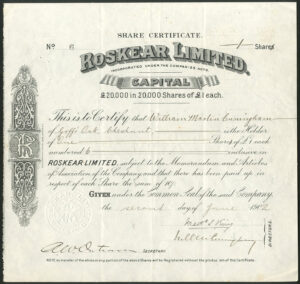 SHARE CERTIFICATE.
No 6 1 Shares
ROSKEAR LIMITED.
INCORPORATED UNDER THE COMPANIES ACTS
CAPITAL
£20,000 in 20,000 Shares of £1 each.
This is to Certify that William Martin Cunningham
of Oak Cheshunt is the Holder
of One Shares of £1 each
numbered 6 inclusive in
ROSKEAR LIMITED, subject to the Memorandum and Articles
of Association of the Company and that there has been paid up in
respect of each Share the sum of
GIVEN under the Common Seal of the said Company,
the second day of June 1902
SECRETARY
DIRECTORS.
NOTE no transfer of the above or any portion of the above Shares will be Registered without the production of this Certificate.